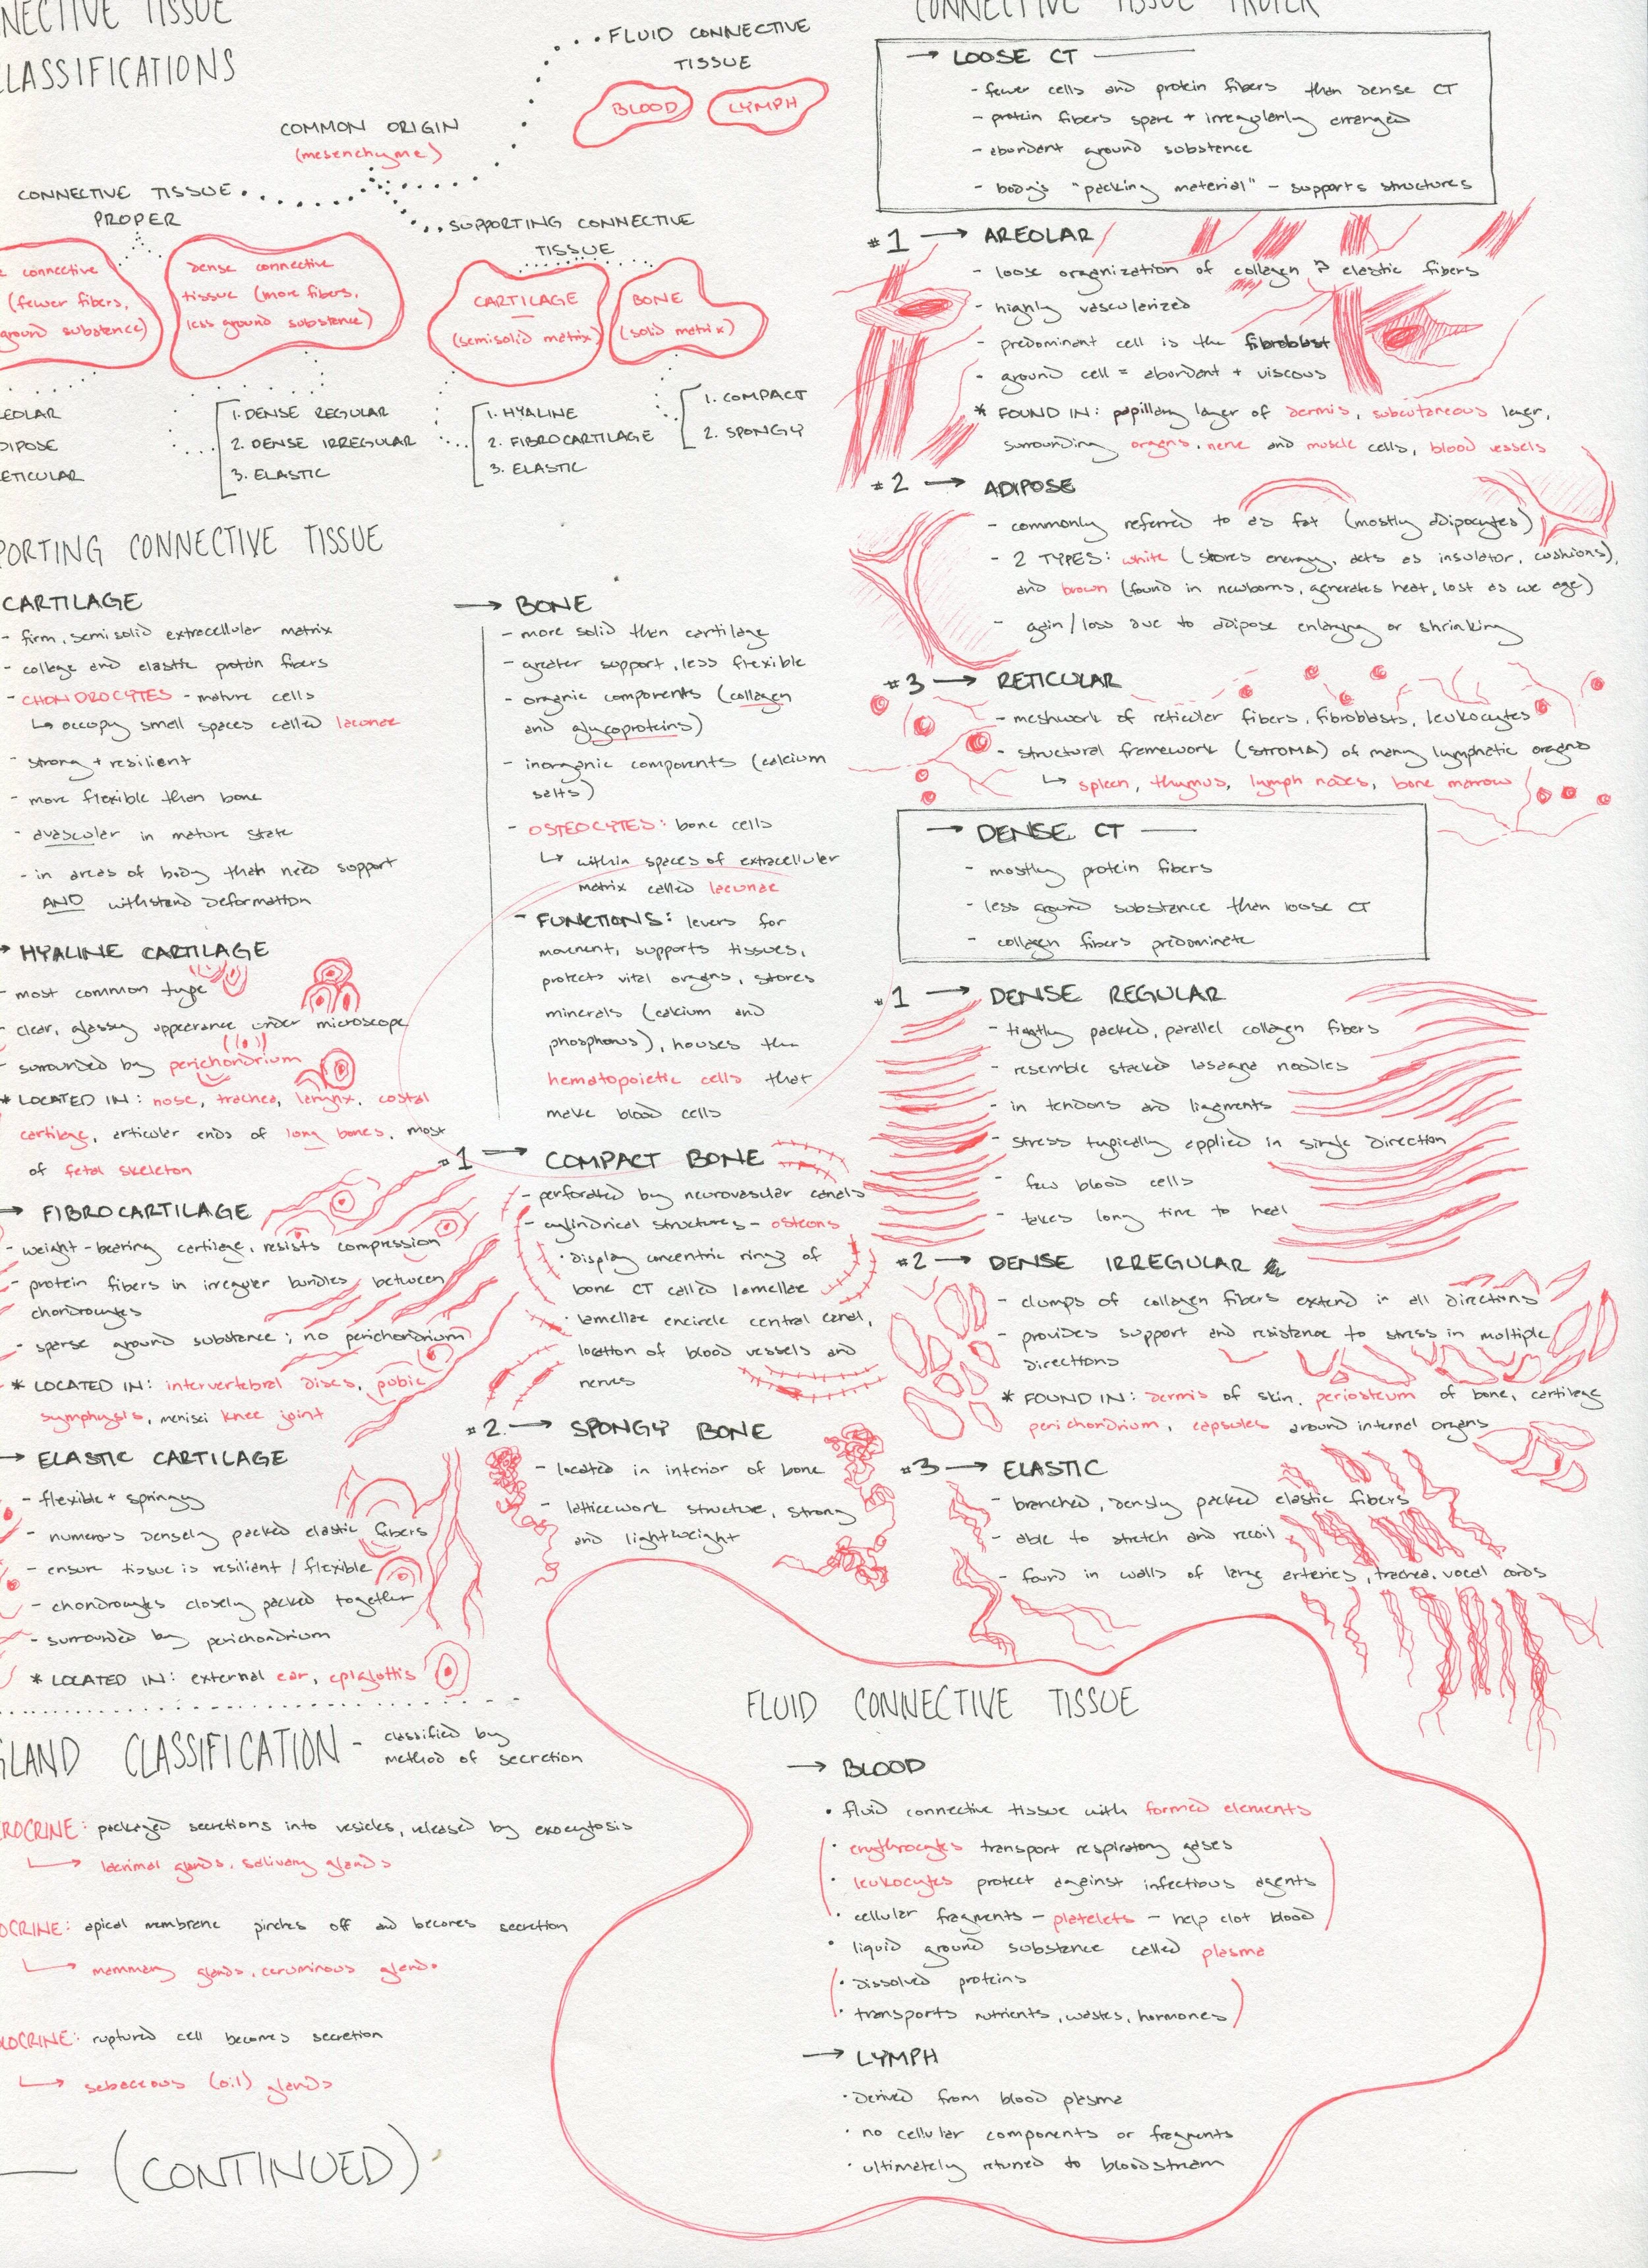 NNECTIVE TISSUE
CLASSIFICATIONS
FLUID CONNECTIVE
TISSUE
BLOOD
LYMPH
COMMON ORIGIN
(mesenchyme)
CONNECTIVE TISSUE
PROPER
SUPPORTING CONNECTIVE
TISSUE
e connective
(fewer fibers,
ground substance)
dense connective
tissue (more fibers,
less ground substance)
CARTILAGE
(semisolid matrix)
BONE
(solid matrix)
EOLAR
DIPOSE
ETICULAR
1. DENSE REGULAR
2. DENSE IRREGULAR
3. ELASTIC
1. HYALINE
2. FIBROCARTILAGE
3. ELASTIC
1. COMPACT
2. SPONGY
PORTING CONNECTIVE TISSUE
CARTILAGE
- firm, semisolid extracellular matrix
- collage and elastic protein fibers
- CHONDROCYTES - mature cells
↳ occupy small spaces called lacunae
- strong + resilient
- more flexible than bone
- avascular in mature state
- in areas of body that need support
AND withstand deformation
→ HYALINE CARTILAGE
- most common type
- clear, glassy appearance under microscope
- surrounded by perichondrium
* LOCATED IN: nose, trachea, larynx, costal
cartilage, articular ends of long bones, most
of fetal skeleton
→ FIBROCARTILAGE
- weight-bearing cartilage, resists compression
- protein fibers in irregular bundles between
chondrocytes
- sparse ground substance; no perichondrium
* LOCATED IN: intervertebral discs, pubic
symphysis, menisci knee joint
→ ELASTIC CARTILAGE
- flexible + springy
- numerous densely packed elastic fibers
- ensure tissue is resilient / flexible
- chondrocytes closely packed together
- surrounded by perichondrium
* LOCATED IN: external ear, epiglottis
→ BONE
- more solid than cartilage
- greater support, less flexible
- organic components (collagen
and glycoproteins)
- inorganic components (calcium
salts)
- OSTEOCYTES: bone cells
↳ within spaces of extracellular
matrix called lacunae
- FUNCTIONS: levers for
movement, supports tissues,
protects vital organs, stores
minerals (calcium and
phosphorus), houses the
hematopoietic cells that
make blood cells
#1 → COMPACT BONE
- perforated by neurovascular canals
- cylindrical structures - osteons
· display concentric rings of
bone CT called lamellae
· lamellae encircle central canal,
location of blood vessels and
nerves
#2. → SPONGY BONE
- located in interior of bone
- latticework structure, strong
and lightweight
GLAND CLASSIFICATION - classified by
method of secretion
ROCRINE: packaged secretions into vesicles, released by exocytosis
↳ lacrimal glands, salivary glands
OCRINE: apical membrane pinches off and becomes secretion
↳ mammary glands, ceruminous glands
LOCRINE: ruptured cell becomes secretion
↳ sebaceous (oil) glands
(CONTINUED)
CONNECTIVE TISSUE PROPER
→ LOOSE CT
- fewer cells and protein fibers than dense CT
- protein fibers spare + irregularly arranged
- abundant ground substance
- body's "packing material" - supports structures
#1 → AREOLAR
- loose organization of collagen & elastic fibers
- highly vascularized
- predominant cell is the fibroblast
- ground cell = abundant + viscous
* FOUND IN: papillary layer of dermis, subcutaneous layer,
surrounding organs, nerve and muscle cells, blood vessels
#2 → ADIPOSE
- commonly referred to as fat (mostly adipocytes)
- 2 TYPES: white (stores energy, acts as insulator, cushions),
and brown (found in newborns, generates heat, lost as we age)
- gain / loss due to adipose enlarging or shrinking
#3 → RETICULAR
- meshwork of reticular fibers, fibroblasts, leukocytes
- structural framework (STROMA) of many lymphatic organs
↳ spleen, thymus, lymph nodes, bone marrow
→ DENSE CT
- mostly protein fibers
- less ground substance than loose CT
- collagen fibers predominate
#1 → DENSE REGULAR
- tightly packed, parallel collagen fibers
- resemble stacked lasagna noodles
- in tendons and ligaments
- stress typically applied in single direction
- few blood cells
- takes long time to heal
#2 → DENSE IRREGULAR
- clumps of collagen fibers extend in all directions
- provides support and resistance to stress in multiple
directions
* FOUND IN: dermis of skin, periosteum of bone, cartilage
perichondrium, capsules around internal organs
#3 → ELASTIC
- branched, densly packed elastic fibers
- able to stretch and recoil
- found in walls of large arteries, trachea, vocal cords
FLUID CONNECTIVE TISSUE
→ BLOOD
• fluid connective tissue with formed elements
· erythrocytes transport respiratory gases
· leukocytes protect against infectious agents
· cellular fragments - platelets - help clot blood
• liquid ground substance called plasma
· dissolved proteins
· transports nutrients, wastes, hormones
→ LYMPH
· derived from blood plasma
· no cellular components or fragments
· ultimately retuned to bloodstream